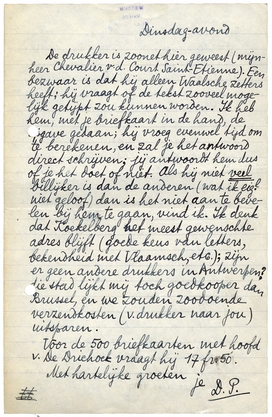 Dinsdag-avond
De drukker is zoonet hier geweest (mijn-
heer Chevalier v. d. Court Saint-Etienne). Een
bezwaar is dat hij alleen Waalsche zetters
heeft; hij vraagt of de tekst zooveel moge-
lijk getypt zou kunnen worden. Ik heb
hem, met je briefkaart in de hand, de
opgave gedaan; hij vroeg evenwel tijd om
te berekenen, en zal je het antwoord
direct schrijven; jij antwoordt hem dus
of je het doet of niet. Als hij niet veel
billijker is dan de anderen (wat ik eig.
niet geloof) dan is het niet aan te beve-
len bij hem te gaan, vind ik. Ik denk
dat Koekelberg het meest gewenschte
adres blijft (goede keus van letters,
bekendheid met Vlaamsch, etc.); zijn
er geen andere drukkers in Antwerpen?
die stad lijkt mij toch goedkooper dan
Brussel, en we zouden zoodoende
verzendkosten (v. drukker naar jou)
uitsparen.
Voor de 500 briefkaarten met hoofd
v. De Driehoek vraagt hij 17 fr 50.
Met hartelijke groeten
je D. P.